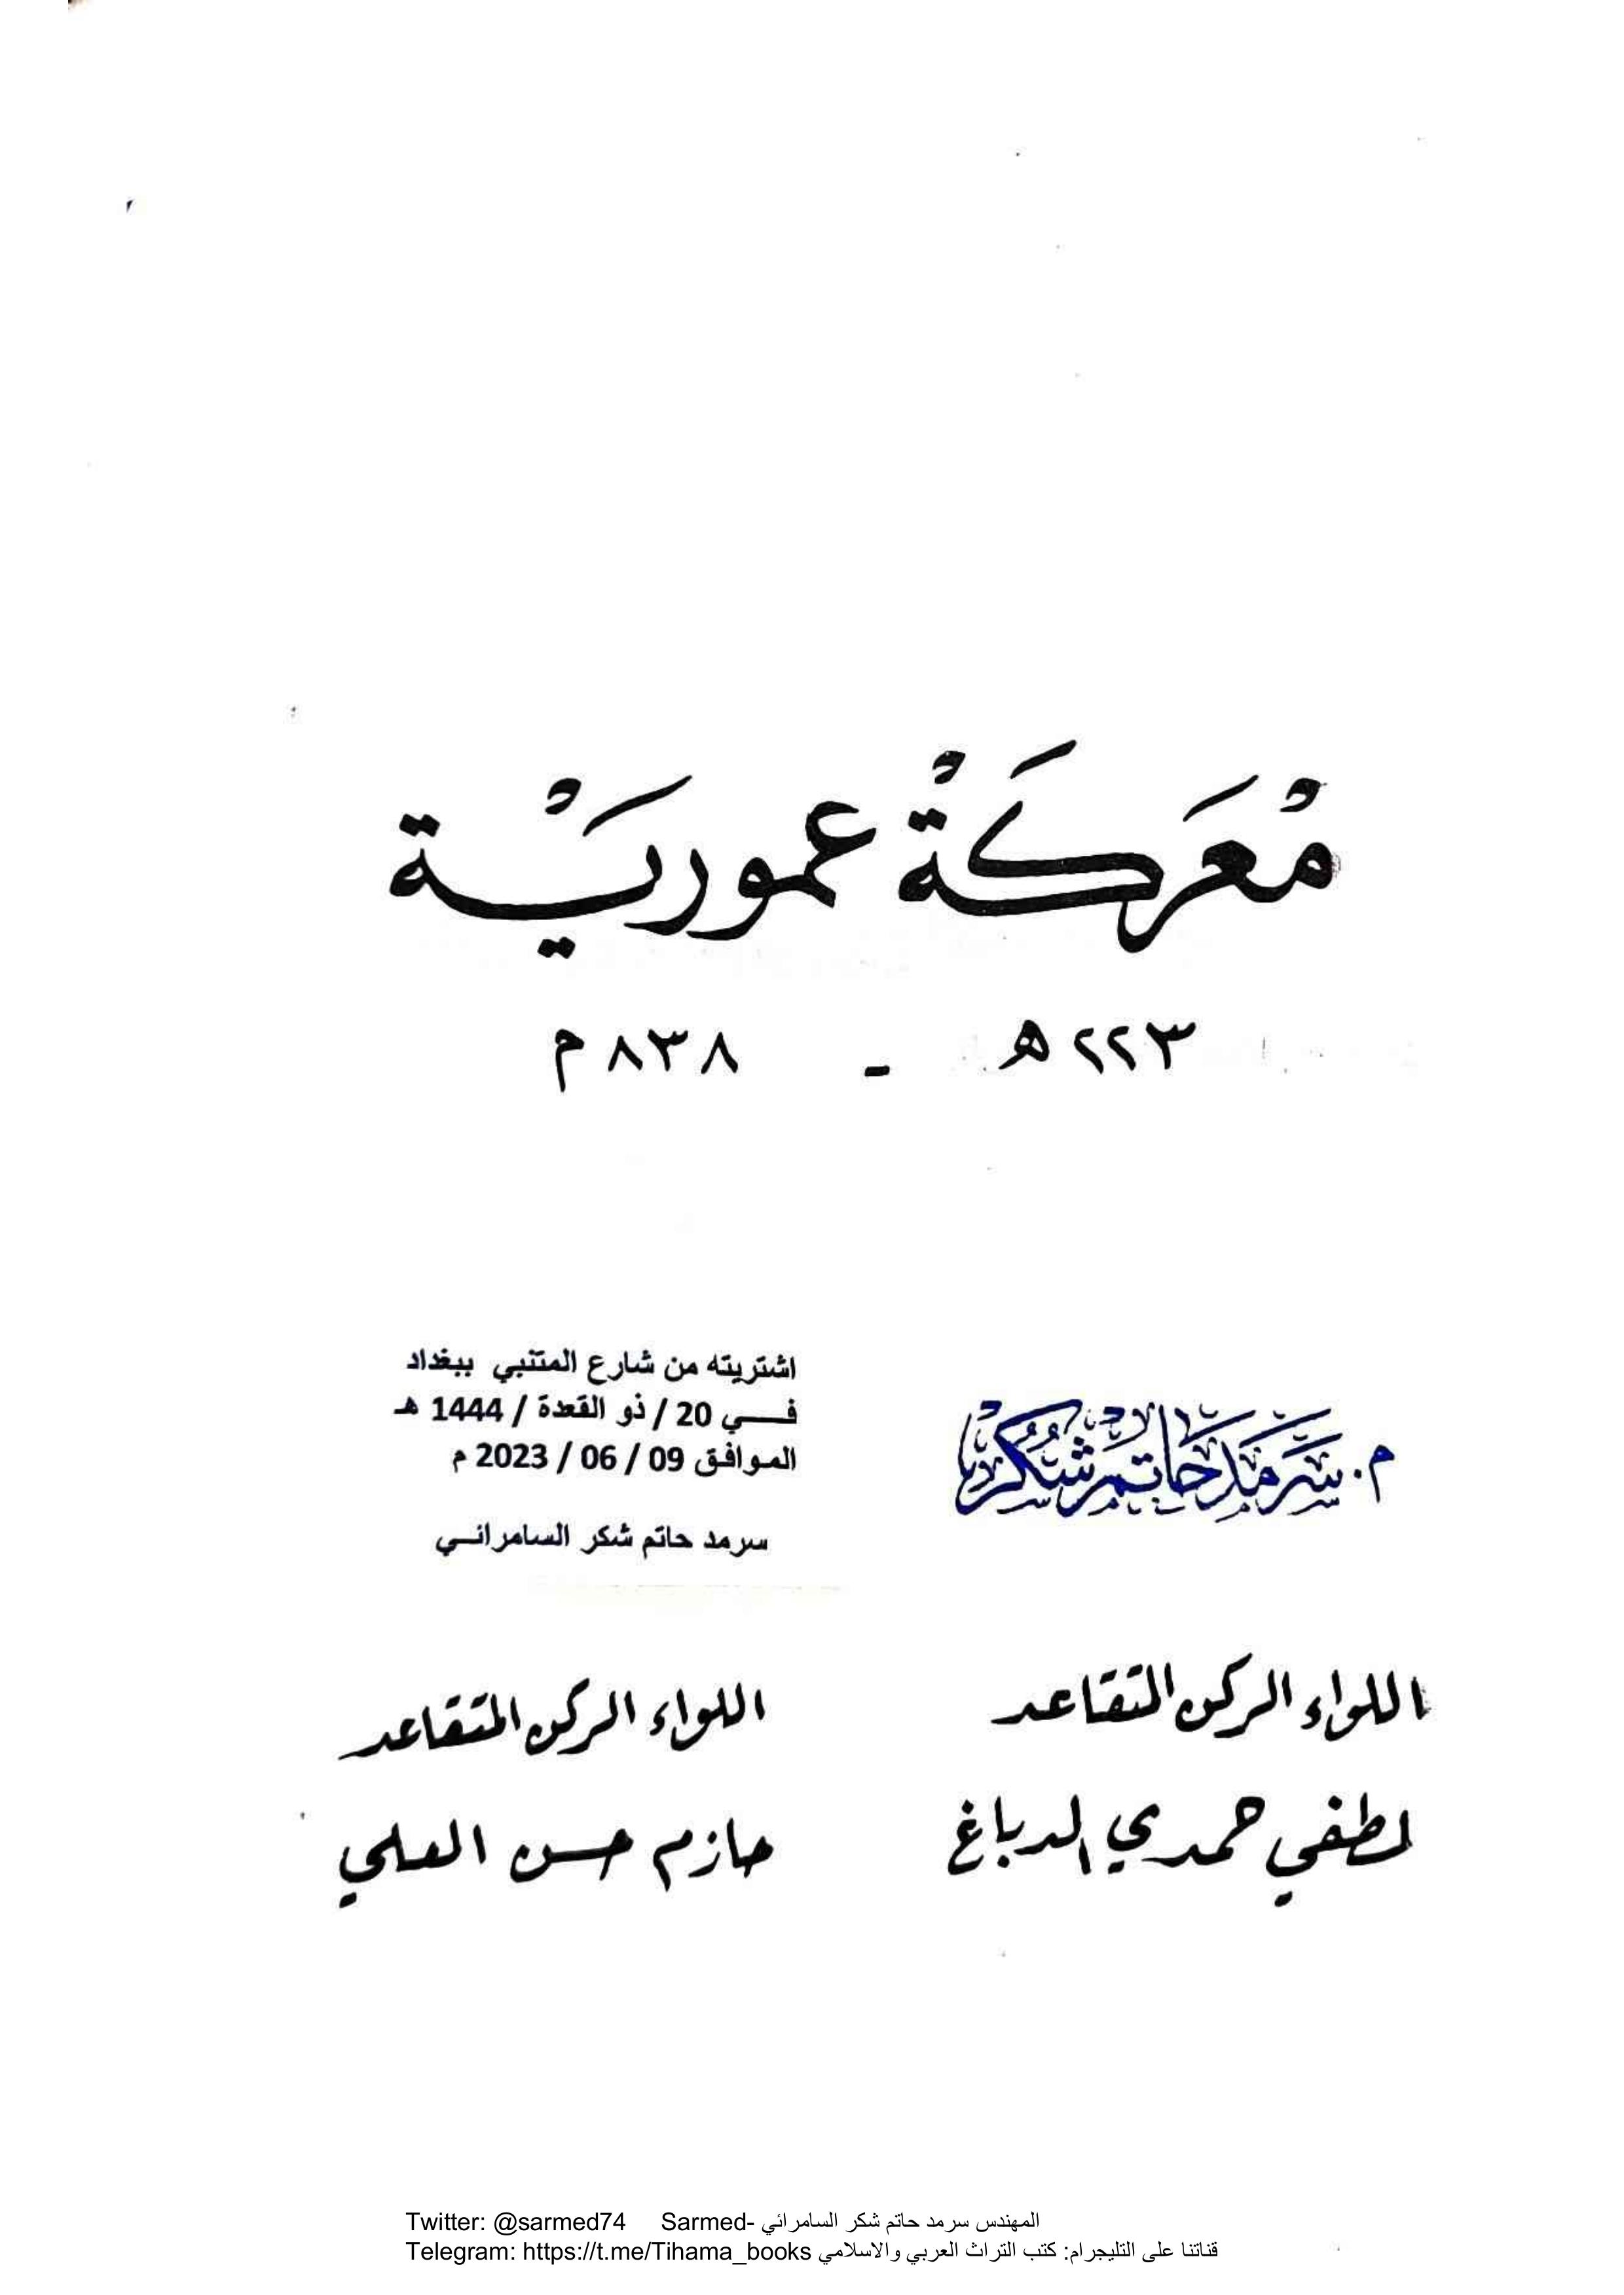 مْعَركَةْ عموريَْة
٢٢٣ هـ - ٨٣٨ م
اشتريته من شارع المتنبي ببغداد
فـــي 20 / ذو القعدة / 1444 هـ
الموافق 09 / 06 / 2023 م
سرمد حاتم شكر السامرائـي
م. سرمد حاتم شكر
اللواء الركن المتقاعد
لطفي حمدي الدباغ
اللواء الركن المتقاعد
حازم حسن العلي
Twitter: @sarmed74 Sarmed- المهندس سرمد حاتم شكر السامرائي
Telegram: https://t.me/Tihama_books قناتنا على التليجرام: كتب التراث العربي والاسلامي